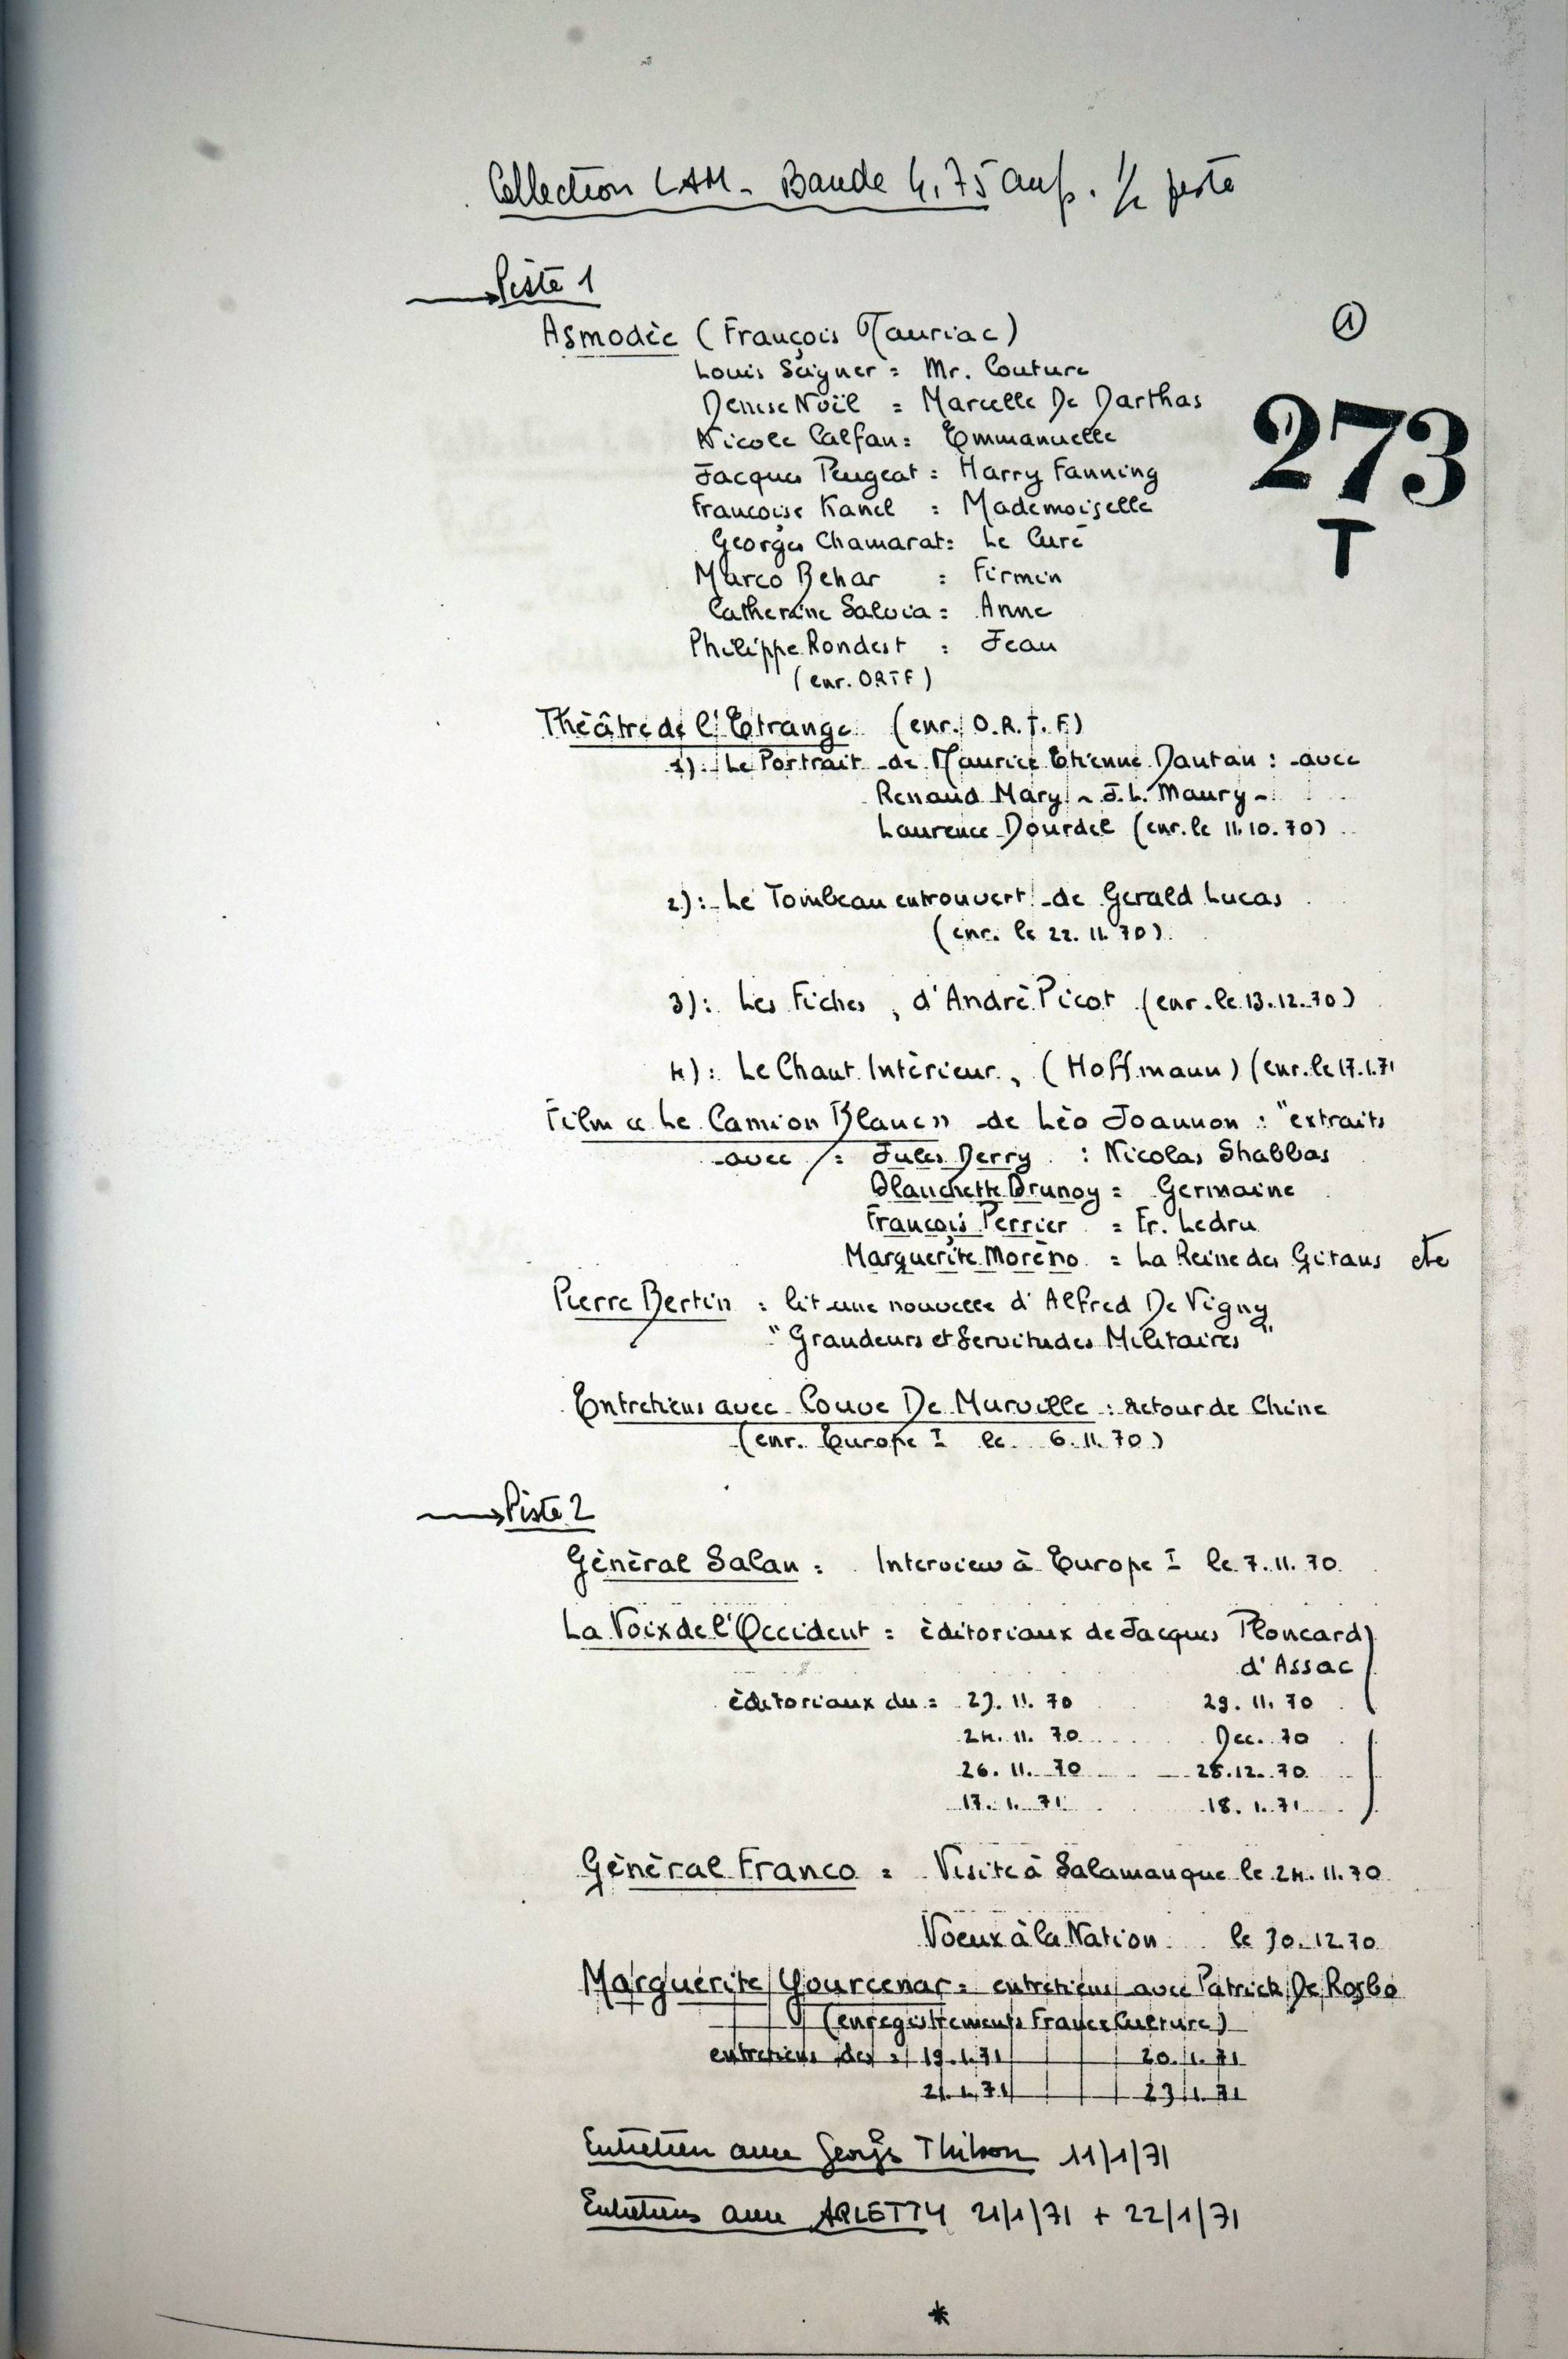 Collection LAM - Bande 4,75 amp. 1/2 piste
→ Piste 1
①
Asmodèe (François Mauriac)
Louis Seigner = Mr. Couture
Denise Noël = Marcelle De Barthas
273
Nicole Calfan = Emmanuelle
Jacques Peugeat = Harry Fanning
Francoise Kanel : Mademoiselle
T
Georges Chamarat = Le Curé
Marco Behar : Firmin
Catherine Salvia = Anne
Philippe Rondest : Jean
(enr. ORTF)
Théâtre de l'Etrange (enr. O.R.T.F.)
1): Le Portrait - de Maurice Etienne Dautan : - avec
Renaud Mary - J.L. Maury -
Laurence Bourdel (enr. le 11.10.70)
2): - Le Tombeau entrouvert - de Gerald Lucas
(enr. le 22.11.70)
3): Les Fiches, d'Andrè Picot (enr. le 13.12.70)
4): Le Chant Intèrieur, (Hoffmann) (enr. le 17.1.71
Film « Le Camion Blanc » - de Lèo Joannon : "extraits
- avec : Jules Berry : Nicolas Shabbas
Blanchette Brunoy = Germaine
François Perrier = Fr. Ledru
Marguerite Morèno = La Reine des Gitans etc
Pierre Bertin : lit une nouvelle d'Alfred De Vigny
"Grandeurs et Servitudes Militaires"
Entretiens avec Couve De Murville : Retour de Chine
(enr. Europe I le 6.11.70)
→ Piste 2
Gènèral Salan : Interview à Europe I le 7.11.70
La Voix de l'Occident = èditoriaux de Jacques Ploncard
d'Assac
èditoriaux du = 23.11.70 29.11.70
24.11.70 Dec. 70
26.11.70 - 28.12.70
17.1.71 18.1.71
Gènèral Franco = Visite à Salamanque le 24.11.70
Voeux à la Nation le 30.12.70
Marguèrite Yourcenar = entretiens avec Patrick De Rosbo
(enregistrements France Culture)
entretiens des = 19.1.71 20.1.71
21.1.71 23.1.71
Entretien avec Georges Thibon 11/1/71
Entretiens avec ARLETTY 21/1/71 + 22/1/71
*